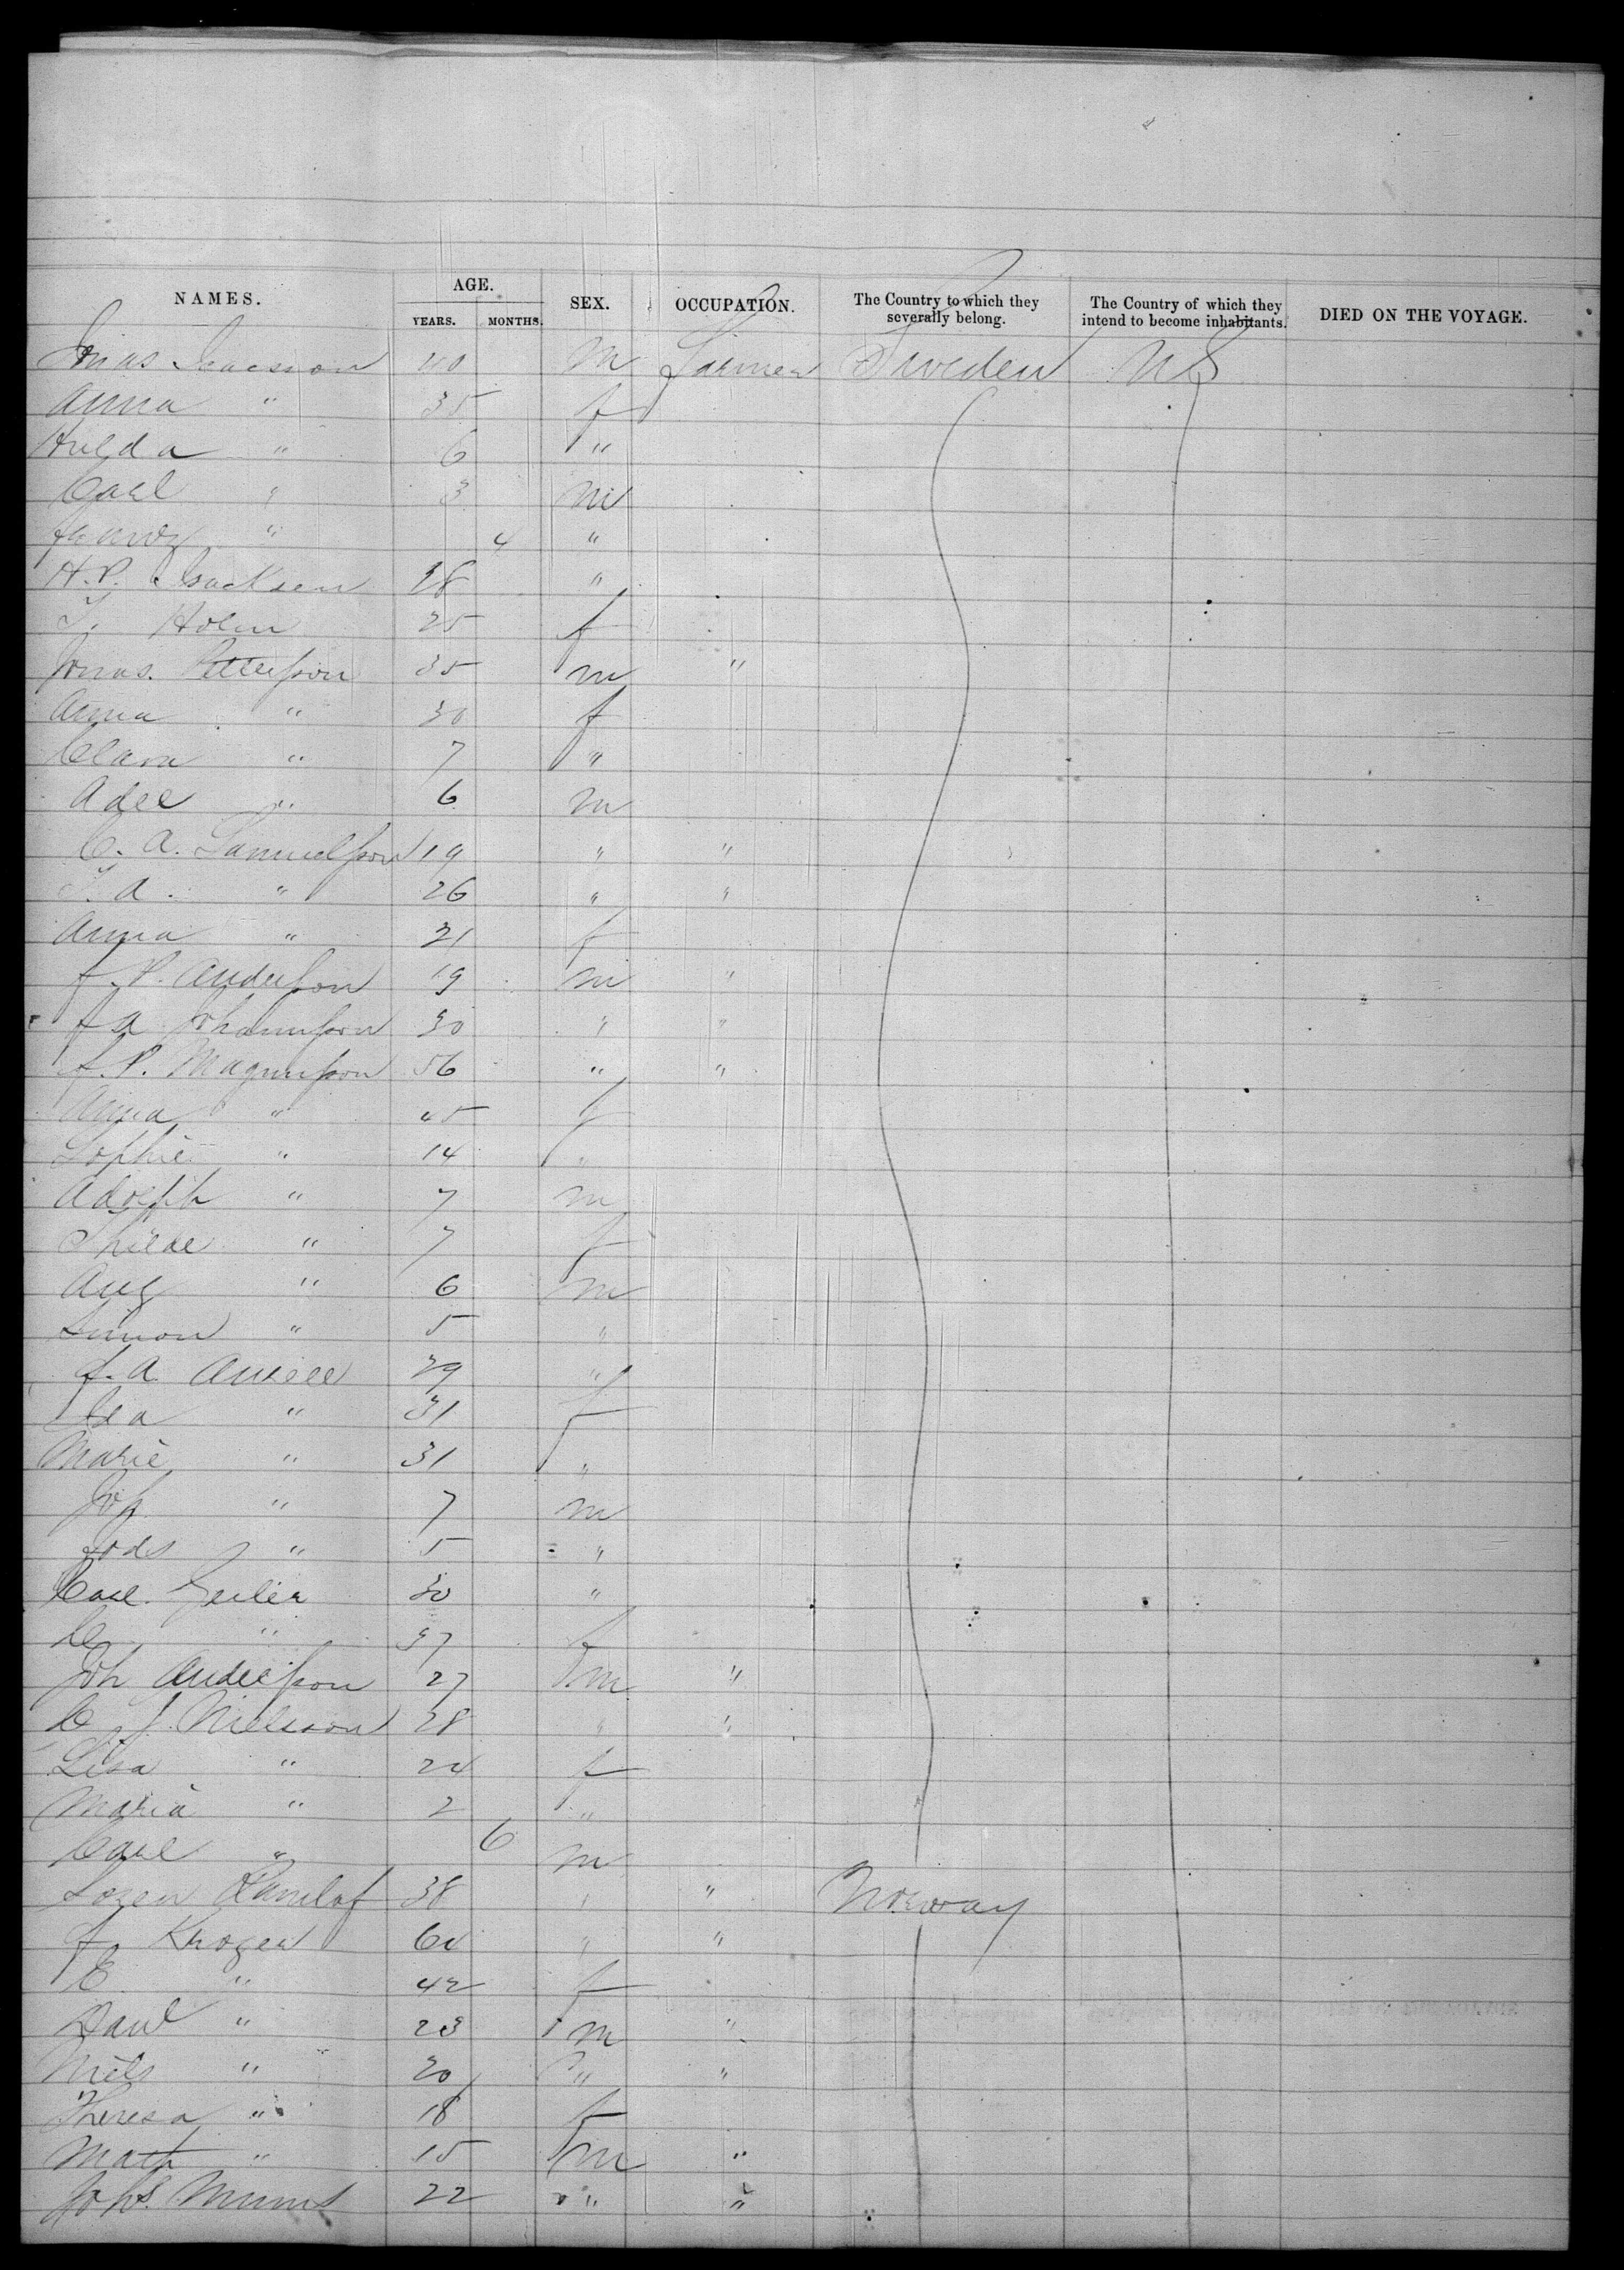 NAMES. AGE. SEX. OCCUPATION. The Country to which they severally belong. The Country of which they intend to become inhabitants. DIED ON THE VOYAGE.
YEARS. MONTHS.
Isaacsson 40 m Farmer Sweden US
Anna " 35 f
Hulda " 6 "
Carl " 3 m
" 4 "
H. P. Isacksen 18 "
Holm 25 f
Jonas. Petterſson 35 m "
Anna " 30 f
Clara " 7 "
Adel " 6 m
C. A. Samuelſson 19 " "
A. " 26 " "
Anna " 21 f
J. P. Anderſson 19 m "
J A Johannſson 30 " "
J. P. Magnuſson 56 " "
Anna " 45 f
Sophie " 14 "
Adolph " 7 m
" 7 f
Aug " 6 m
Simon " 5 "
J. A. 29 "
" 31 f
Marie " 31 "
" 7 m
" 5 "
Carl. 30 "
C " 37 f
Joh Anderſson 27 m "
C J. Nielsson 28 " "
Lisa " 24 f
Maria " 2 "
Carl " 6 m
38 " " Norway
J. Kroger 60 " "
E " 42 f
" 23 m "
Niels " 20 " "
Theresa " 18 f
Math " 15 m "
22 " "